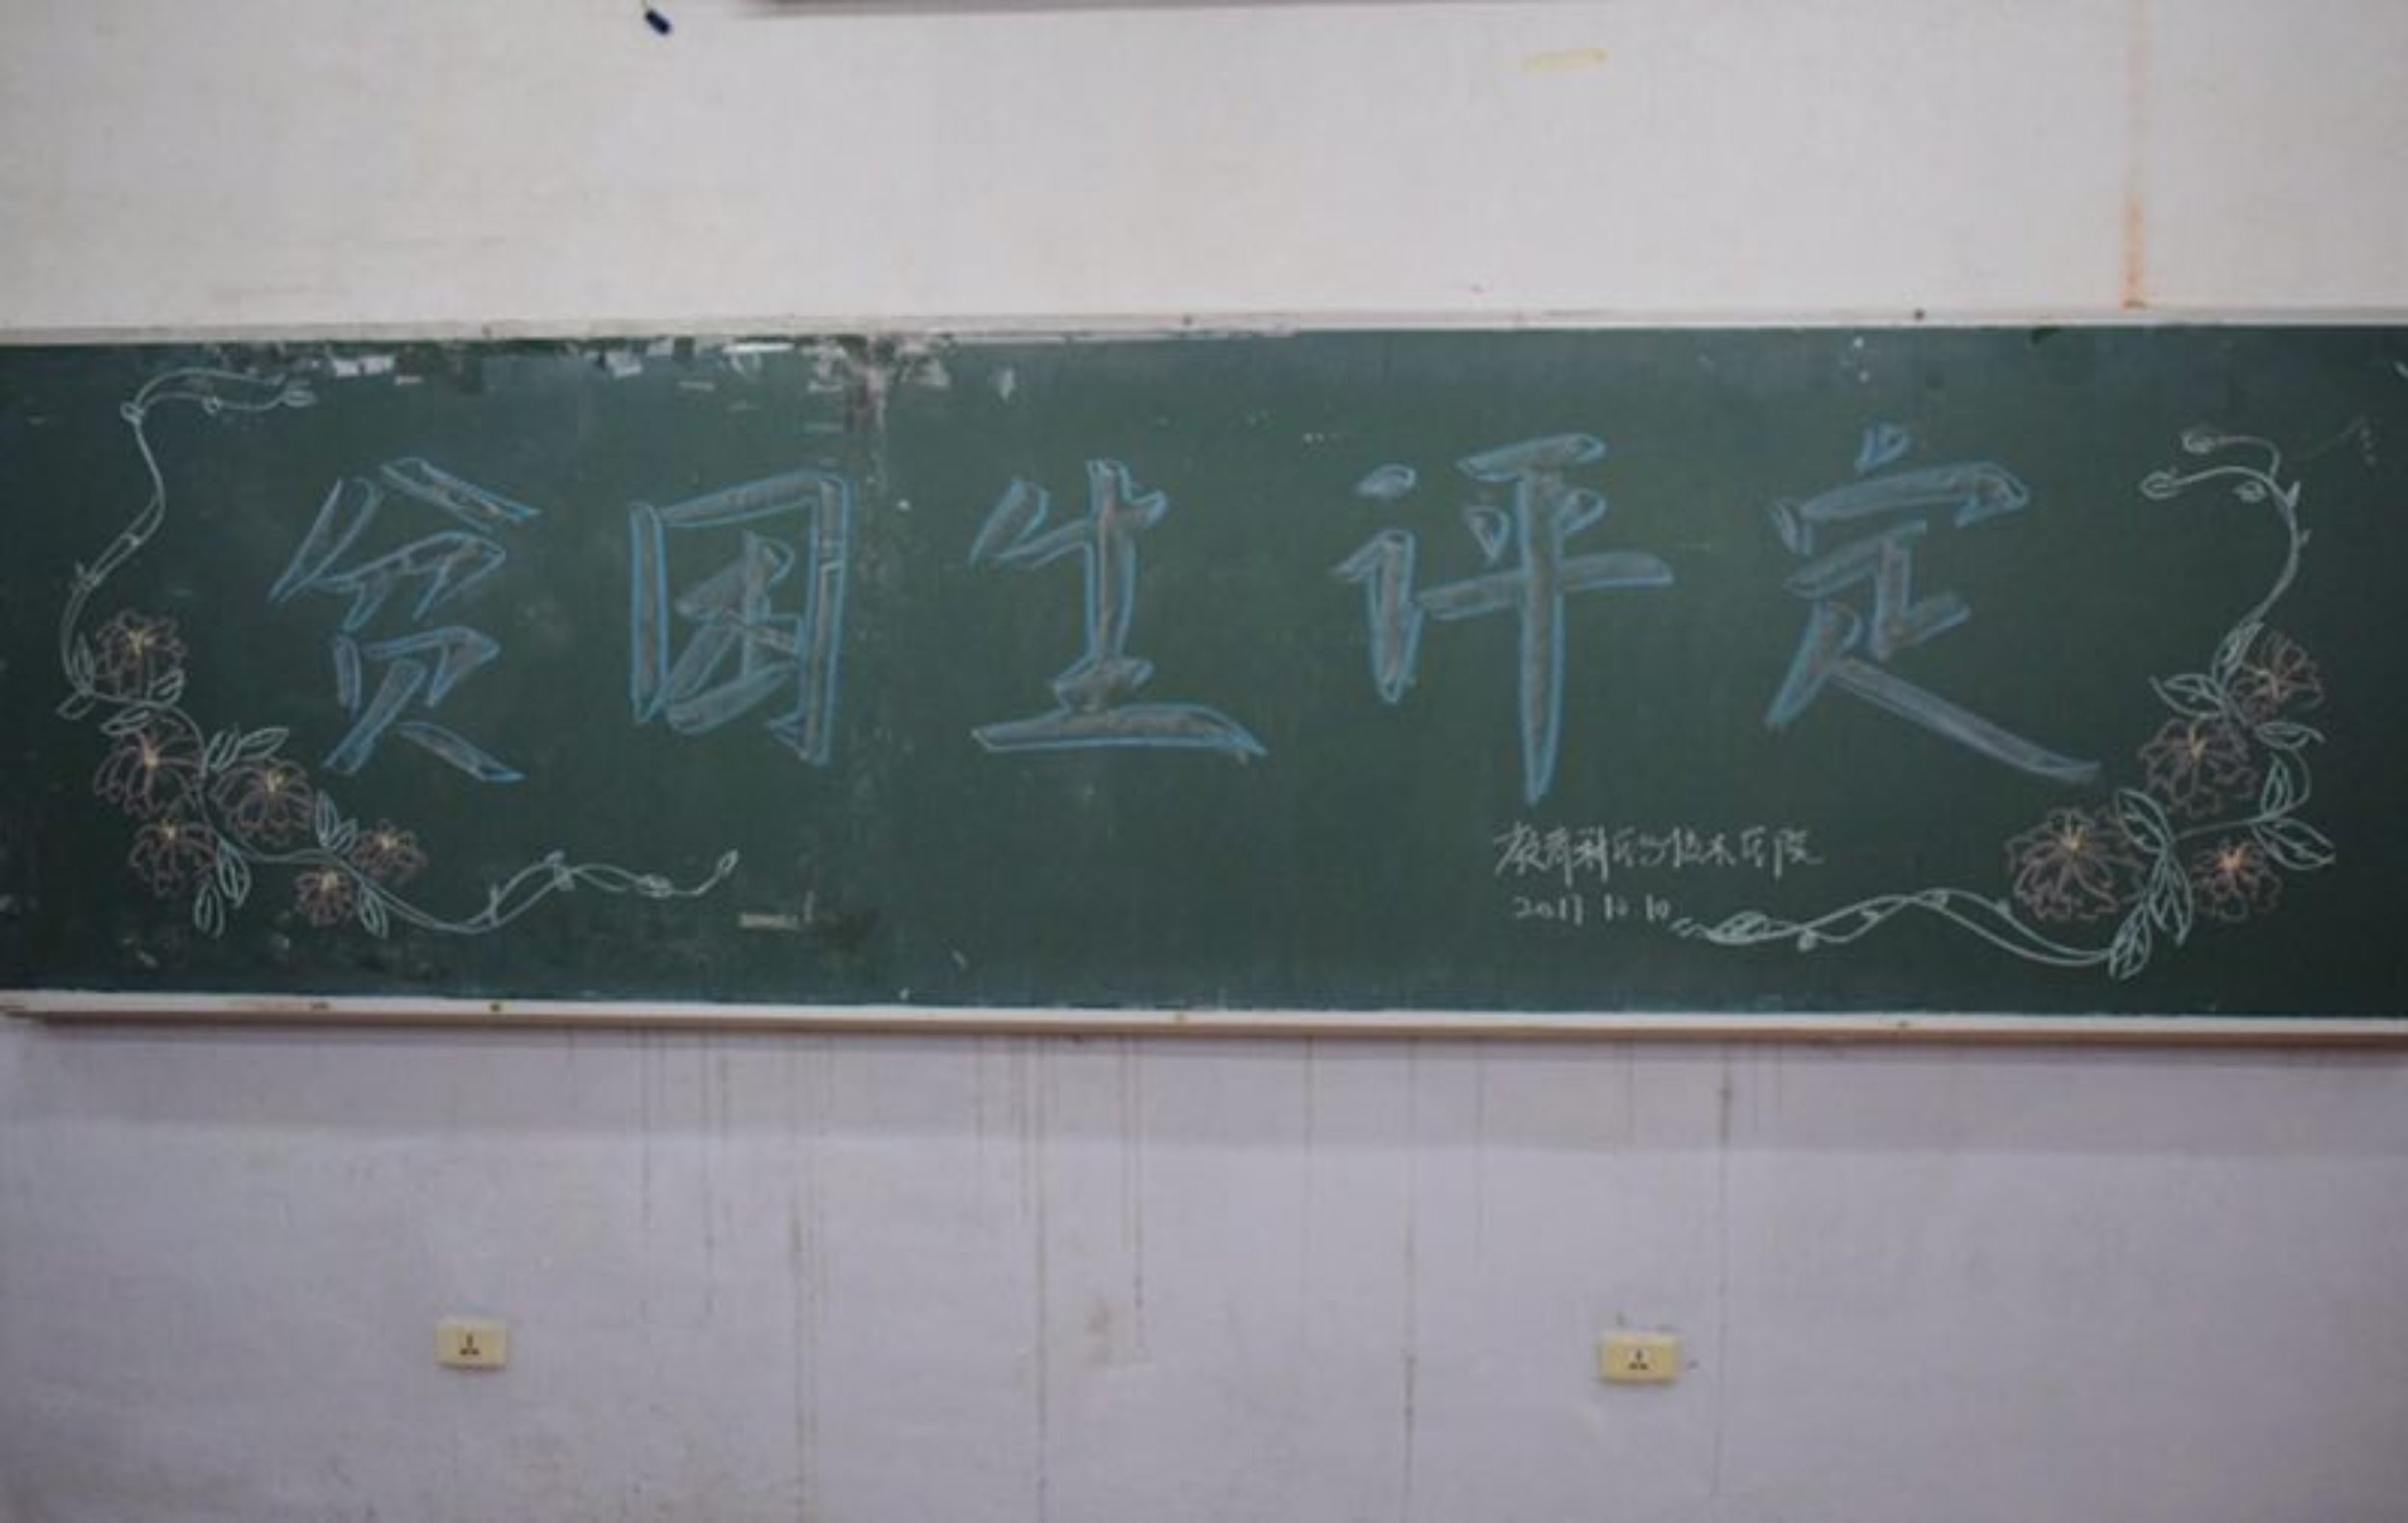 贫困生评定
教育科学与技术学院
2017 10.10